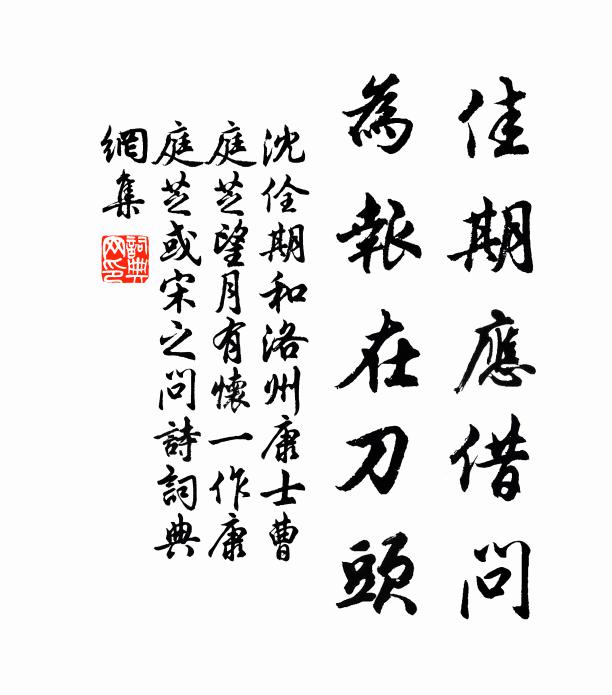 佳期應借問
為報在刀頭
沈佺期和洛州康士曹
庭芝望月有懷一作康
庭芝或宋之問詩詞典
網集
詞典網印